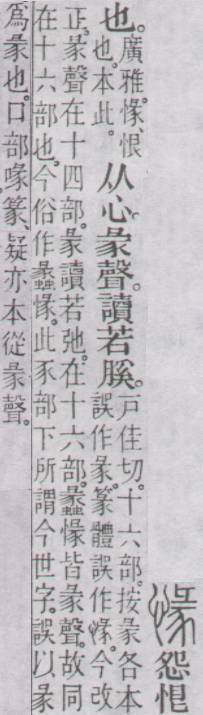 㥟怨恨
也。廣雅㥟、恨
也。本此。从心彖聲。讀若膎。戶佳切。十六部。按彖各本
誤作彖。篆體誤作㥟。今改
正。彖聲在十四部。彖讀若弛。在十六部。蠡㥟皆彖聲。故同
在十六部也。今俗作蠡㥟。此豕部下所謂今世字。誤以彖
爲彖也。口部喙篆、疑亦本從彖聲。